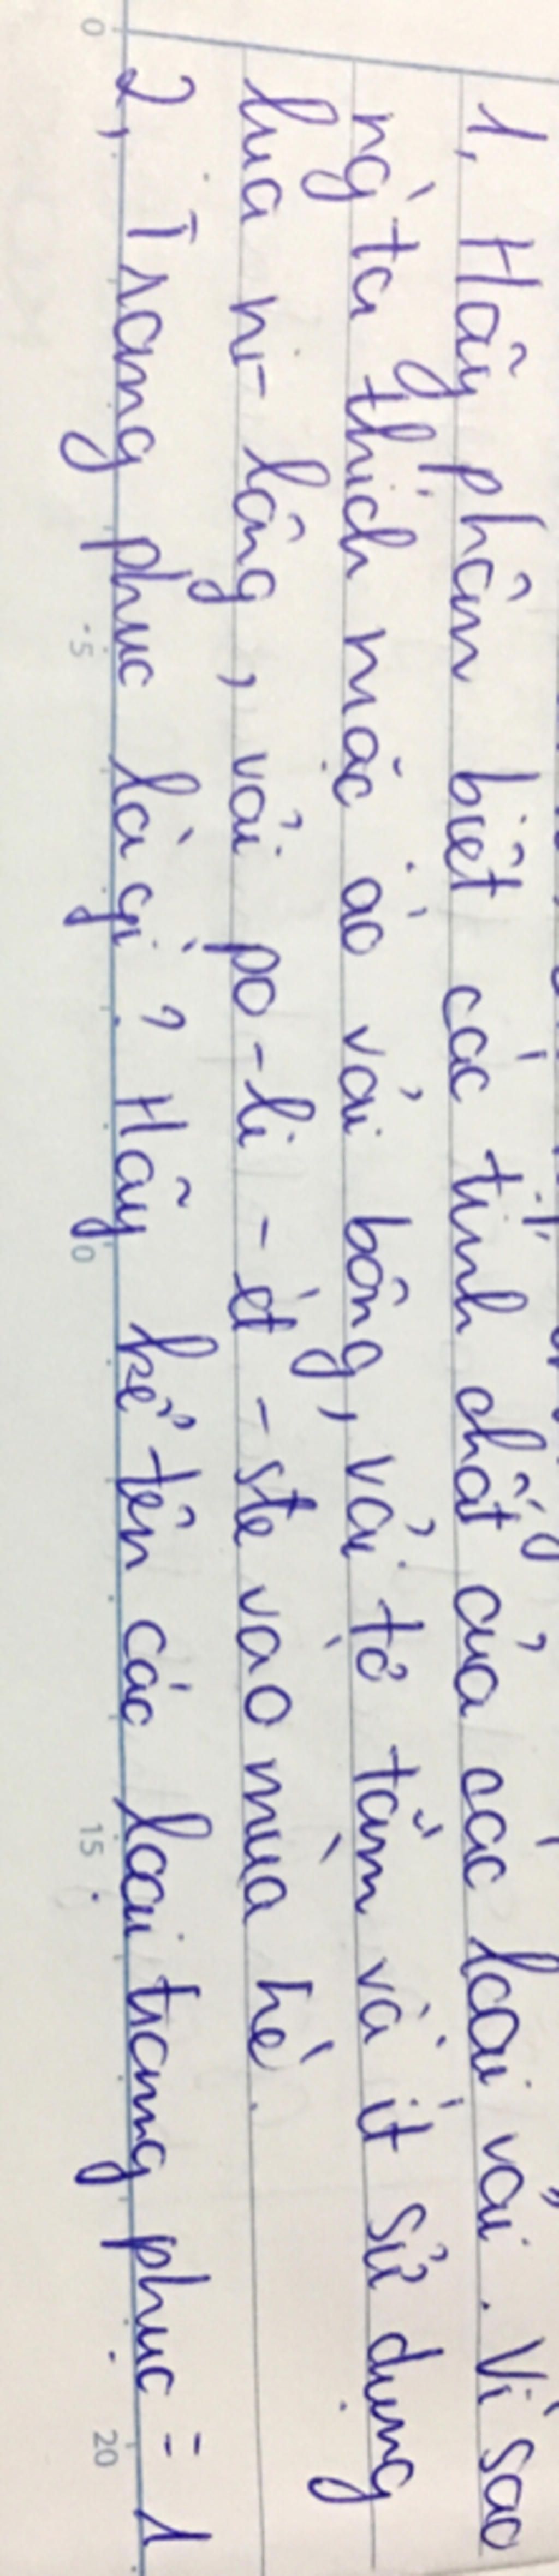 1, Hãy phân biệt các tính chất của các loại vải. Vì sao
ng` ta thích mặc áo vải bông, vải tơ tằm và ít sử dụng
lụa ni-lông, vải po-li-ét-ste vào mùa hè.
2, Trang phục là gì? Hãy kể tên các loại trang phục = 1
0 5 10 15 20